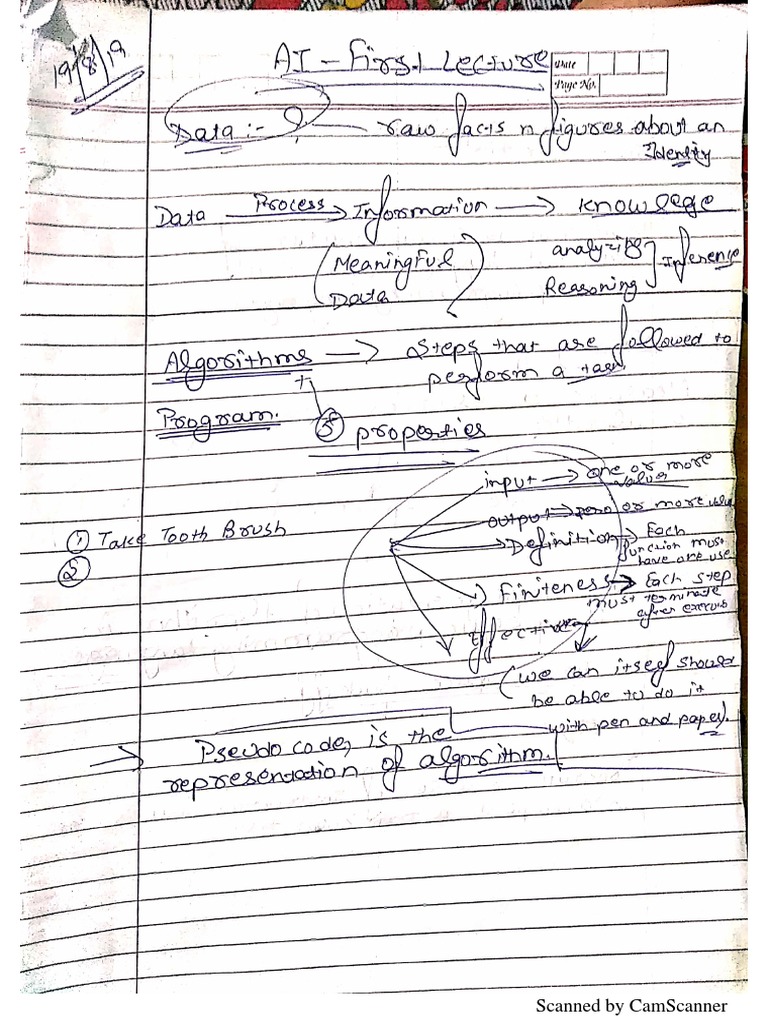 19/8/19
AI - First Lecture
Date
Page No.
Data :- ? raw facts n figures about an
Identity
Data Process Information knowledge
(Meaningful Data)
analyzing
Reasoning
Inference
Algorithms → Steps that are followed to
perform a task
+
Program.
5 properties
input → one or more
value
output → zero or more value
① Take Tooth Brush
②
Definition → Each
function must
have one use
Finiteness → Each step
must terminate
after execution
Effective
(we can itself should
be able to do it
with pen and paper).
→ Pseudo code, is the
representation of algorithm.
Scanned by CamScanner